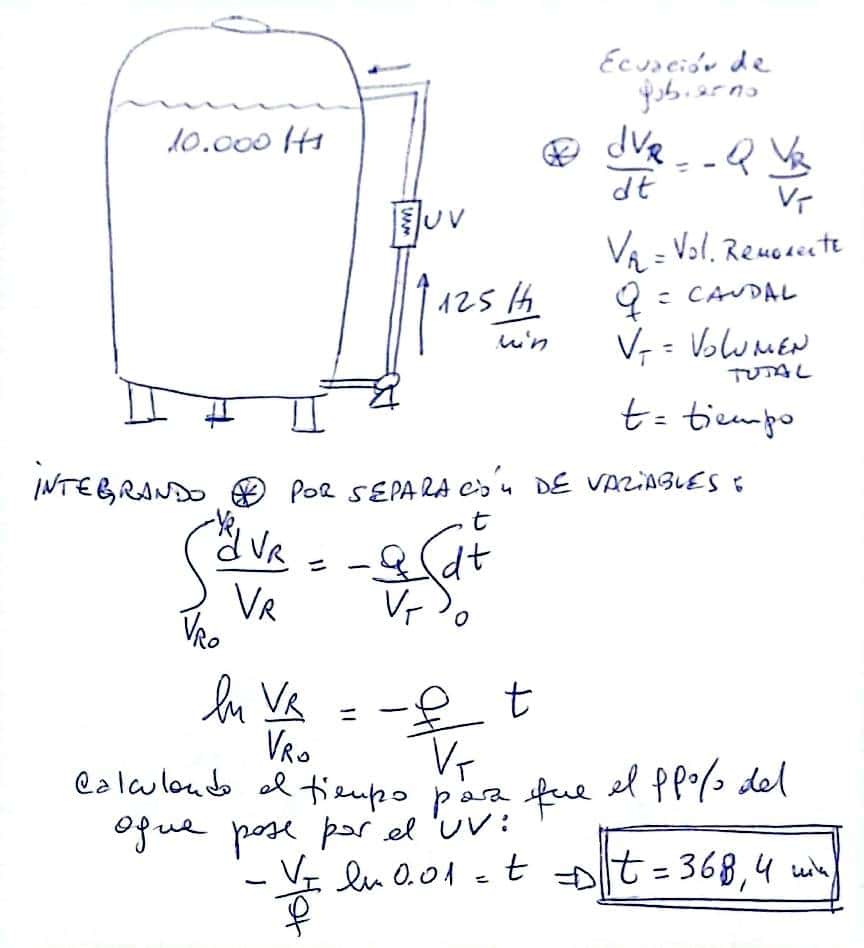 10.000 lts
UV
125 lt/min
Ecuación de
gobierno
⊛ dVR/dt = - Q VR/VT
VR = Vol. Remanente
Q = CAUDAL
VT = VOLUMEN
TOTAL
t = tiempo
INTEGRANDO ⊛ POR SEPARACIÓN DE VARIABLES:
∫VR0^VR dVR/VR = - Q/VT ∫0^t dt
ln VR/VR0 = - Q/VT t
Calculando el tiempo para que el 99% del
agua pase por el UV:
- VT/Q ln 0.01 = t ⇒ t = 368,4 min